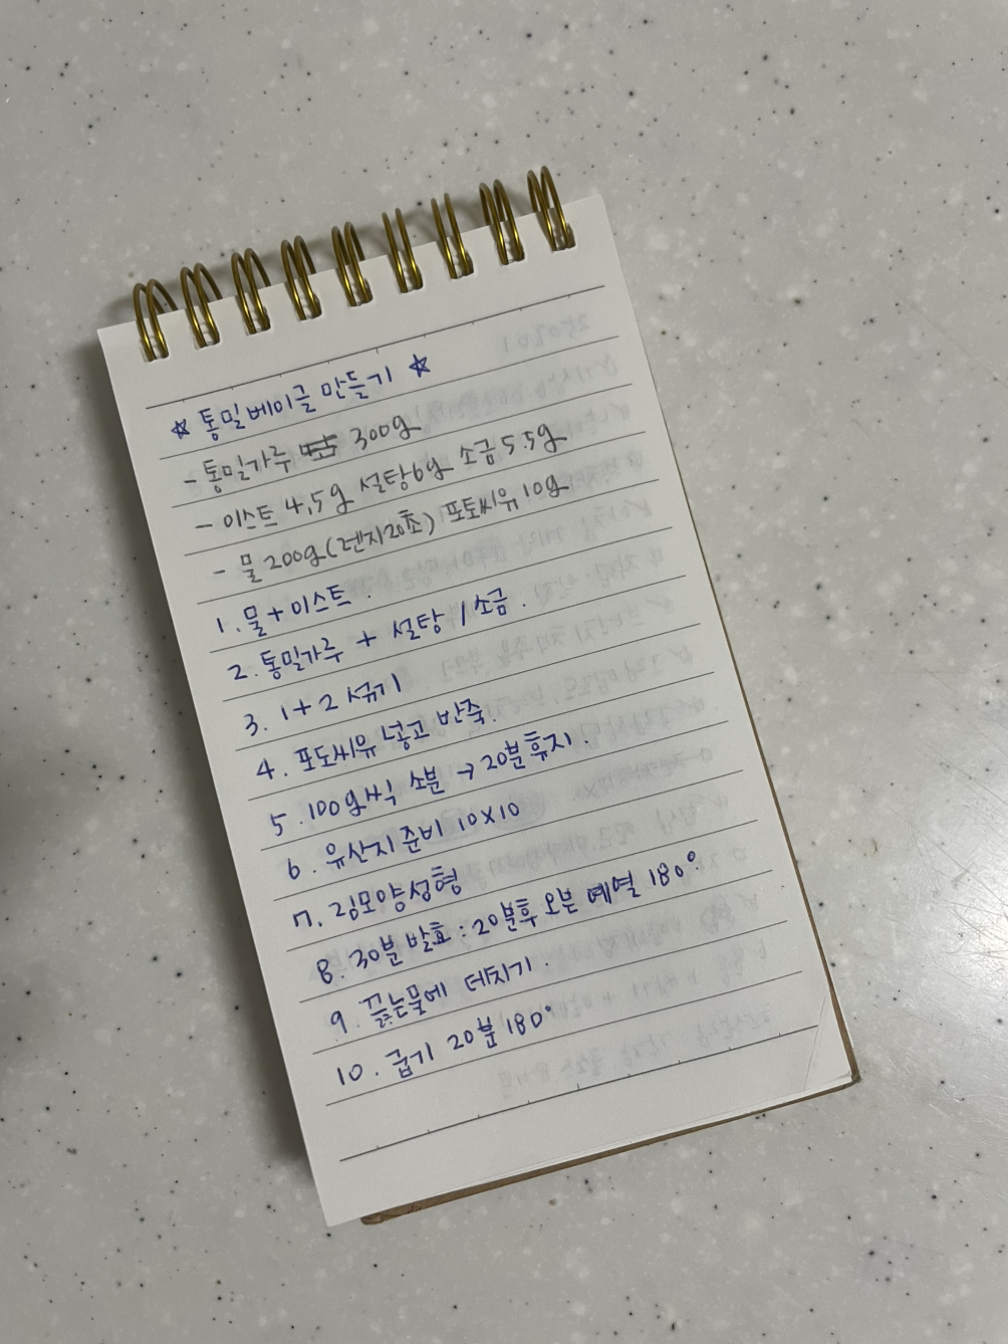 ☆ 통밀베이글 만들기 ☆
- 통밀가루 300g
- 이스트 4.5g 설탕6g 소금 5.5g
- 물 200g (렌지20초) 포토씨유 10g
1. 물 + 이스트.
2. 통밀가루 + 설탕 / 소금.
3. 1 + 2 섞기
4. 포도씨유 넣고 반죽.
5. 100g씩 소분 → 20분휴지.
6. 유산지 준비 10×10
7. 링모양성형
8. 30분 발효 : 20분후 오븐 예열 180°.
9. 끓는물에 데치기.
10. 굽기 20분 180°